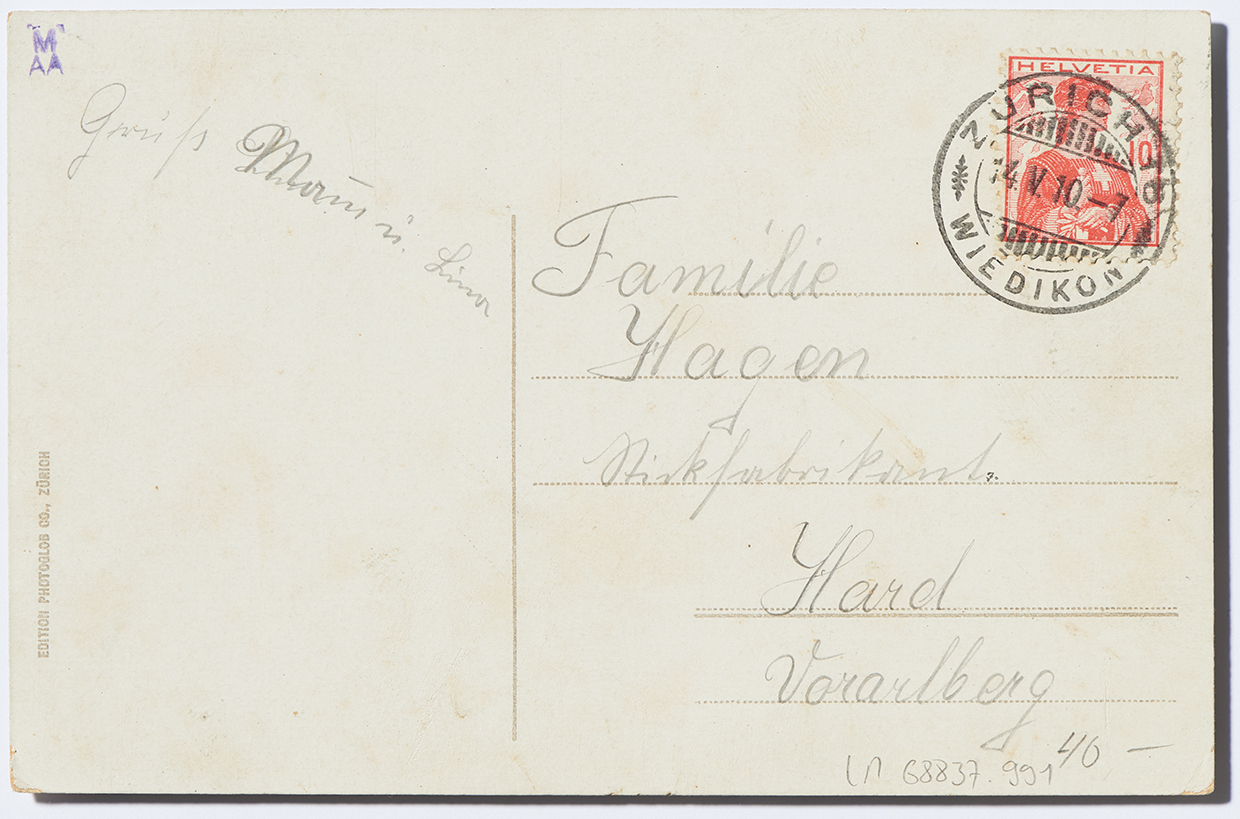 M
AA
Gruß
u.
Lina
EDITION PHOTOGLOB CO., ZÜRICH
HELVETIA
10
ZÜRICH
14.V.10–7
WIEDIKON
Familie
Hagen
Stickfabrikant.
Hard
Vorarlberg
40 –
LM 68837.991